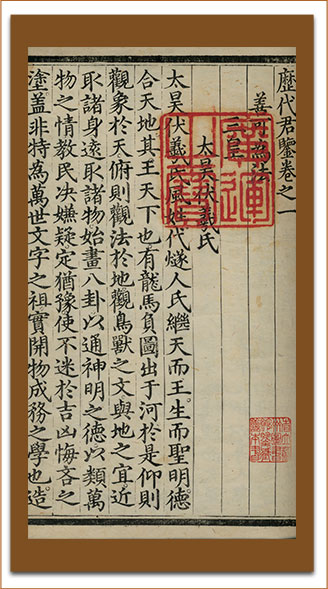 歷代君鑒卷之一
善可為法
三皇
太昊伏羲氏
太昊伏羲氏風姓代燧人氏繼天而王生而聖明德
合天地其王天下也有龍馬負圖出于河於是仰則
觀象於天俯則觀法於地觀鳥獸之文與地之宜近
取諸身遠取諸物始畫八卦以通神明之德以類萬
物之情教民决嫌疑定猶豫使不迷於吉凶悔吝之
塗盖非特為萬世文字之祖實開物成務之學也造
廣運之寶